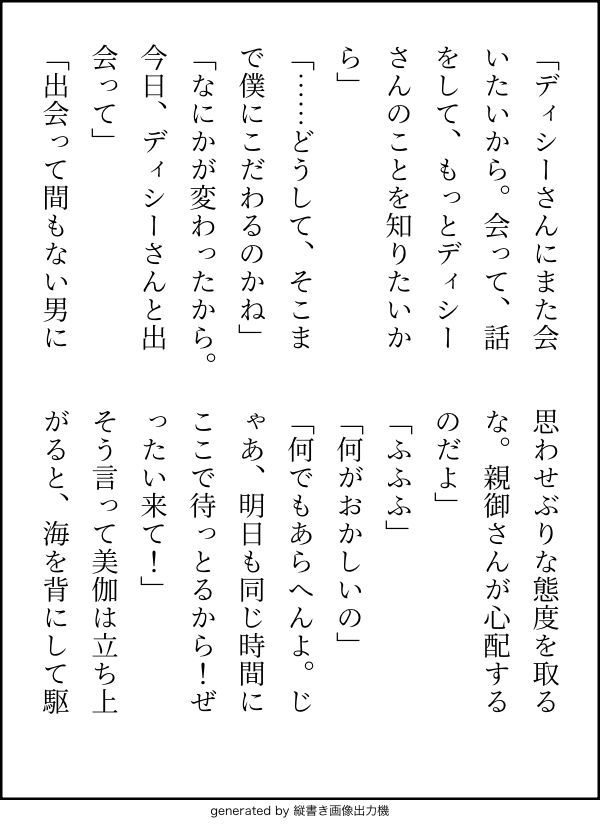 「ディシーさんにまた会
いたいから。会って、話
をして、もっとディシー
さんのことを知りたいか
ら」
「……どうして、そこま
で僕にこだわるのかね」
「なにかが変わったから。
今日、ディシーさんと出
会って」
「出会って間もない男に
思わせぶりな態度を取る
な。親御さんが心配する
のだよ」
「ふふふ」
「何がおかしいの」
「何でもあらへんよ。じ
ゃあ、明日も同じ時間に
ここで待っとるから！ぜ
ったい来て！」
そう言って美伽は立ち上
がると、海を背にして駆
generated by 縦書き画像出力機